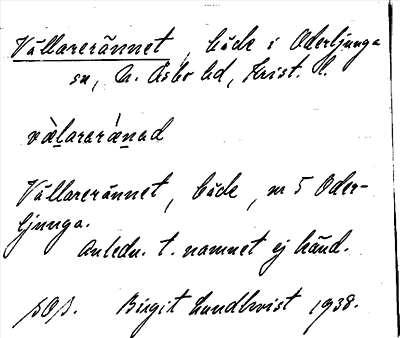 Vällarerännet, både i Oderljunga
sn, N. Åsbo hd, Krist. l.
vælararæ̀nad
Vällarerännet, både, nr 5 Oder-
ljunga.
Anledn. t. namnet ej känd.
Birgit Lundkvist 1938.